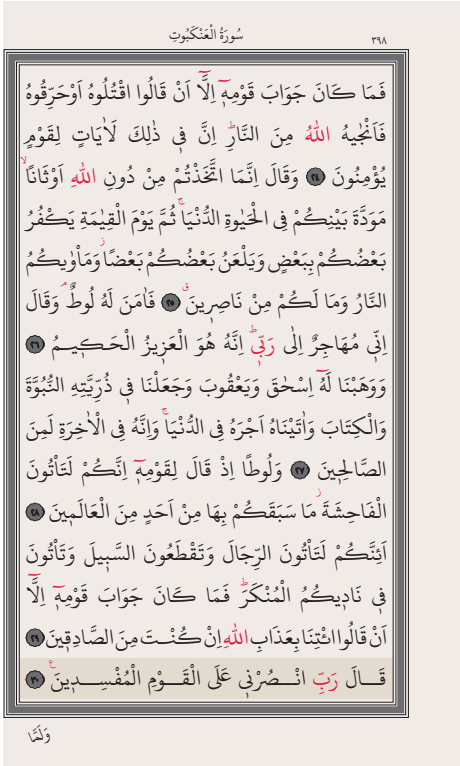 سُورَةُ الْعَنْكَبُوتِ ٣٩٨
فَمَا كَانَ جَوَابَ قَوْمِهٖٓ اِلَّٓا اَنْ قَالُوا اقْتُلُوهُ اَوْحَرِّقُوهُ
فَاَنْجٰيهُ اللّٰهُ مِنَ النَّارِۜ اِنَّ فٖي ذٰلِكَ لَاٰيَاتٍ لِقَوْمٍ
يُؤْمِنُونَ ٢٤ وَقَالَ اِنَّمَا اتَّخَذْتُمْ مِنْ دُونِ اللّٰهِ اَوْثَانًاۙ
مَوَدَّةَ بَيْنِكُمْ فِي الْحَيٰوةِ الدُّنْيَاۚ ثُمَّ يَوْمَ الْقِيٰمَةِ يَكْفُرُ
بَعْضُكُمْ بِبَعْضٍ وَيَلْعَنُ بَعْضُكُمْ بَعْضًاۘ وَمَاْوٰيكُمُ
النَّارُ وَمَا لَكُمْ مِنْ نَاصِرٖينَۗ ٢٥ فَاٰمَنَ لَهُ لُوطٌۢ وَقَالَ
اِنّٖي مُهَاجِرٌ اِلٰى رَبّٖيۜ اِنَّهُ هُوَ الْعَزٖيزُ الْحَكٖيمُ ٢٦
وَوَهَبْنَا لَهُٓ اِسْحٰقَ وَيَعْقُوبَ وَجَعَلْنَا فٖي ذُرِّيَّتِهِ النُّبُوَّةَ
وَالْكِتَابَ وَاٰتَيْنَاهُ اَجْرَهُ فِي الدُّنْيَاۚ وَاِنَّهُ فِي الْاٰخِرَةِ لَمِنَ
الصَّالِحٖينَ ٢٧ وَلُوطًا اِذْ قَالَ لِقَوْمِهٖٓ اِنَّكُمْ لَتَاْتُونَ
الْفَاحِشَةَۘ مَا سَبَقَكُمْ بِهَا مِنْ اَحَدٍ مِنَ الْعَالَمٖينَ ٢٨
اَئِنَّكُمْ لَتَاْتُونَ الرِّجَالَ وَتَقْطَعُونَ السَّبٖيلَ وَتَاْتُونَ
فٖي نَادٖيكُمُ الْمُنْكَرَۜ فَمَا كَانَ جَوَابَ قَوْمِهٖٓ اِلَّٓا
اَنْ قَالُوا ائْتِنَا بِعَذَابِ اللّٰهِ اِنْ كُنْتَ مِنَ الصَّادِقٖينَ ٢٩
قَالَ رَبِّ انْصُرْنٖي عَلَى الْقَوْمِ الْمُفْسِدٖينَ۟ ٣٠
وَلَمَّا